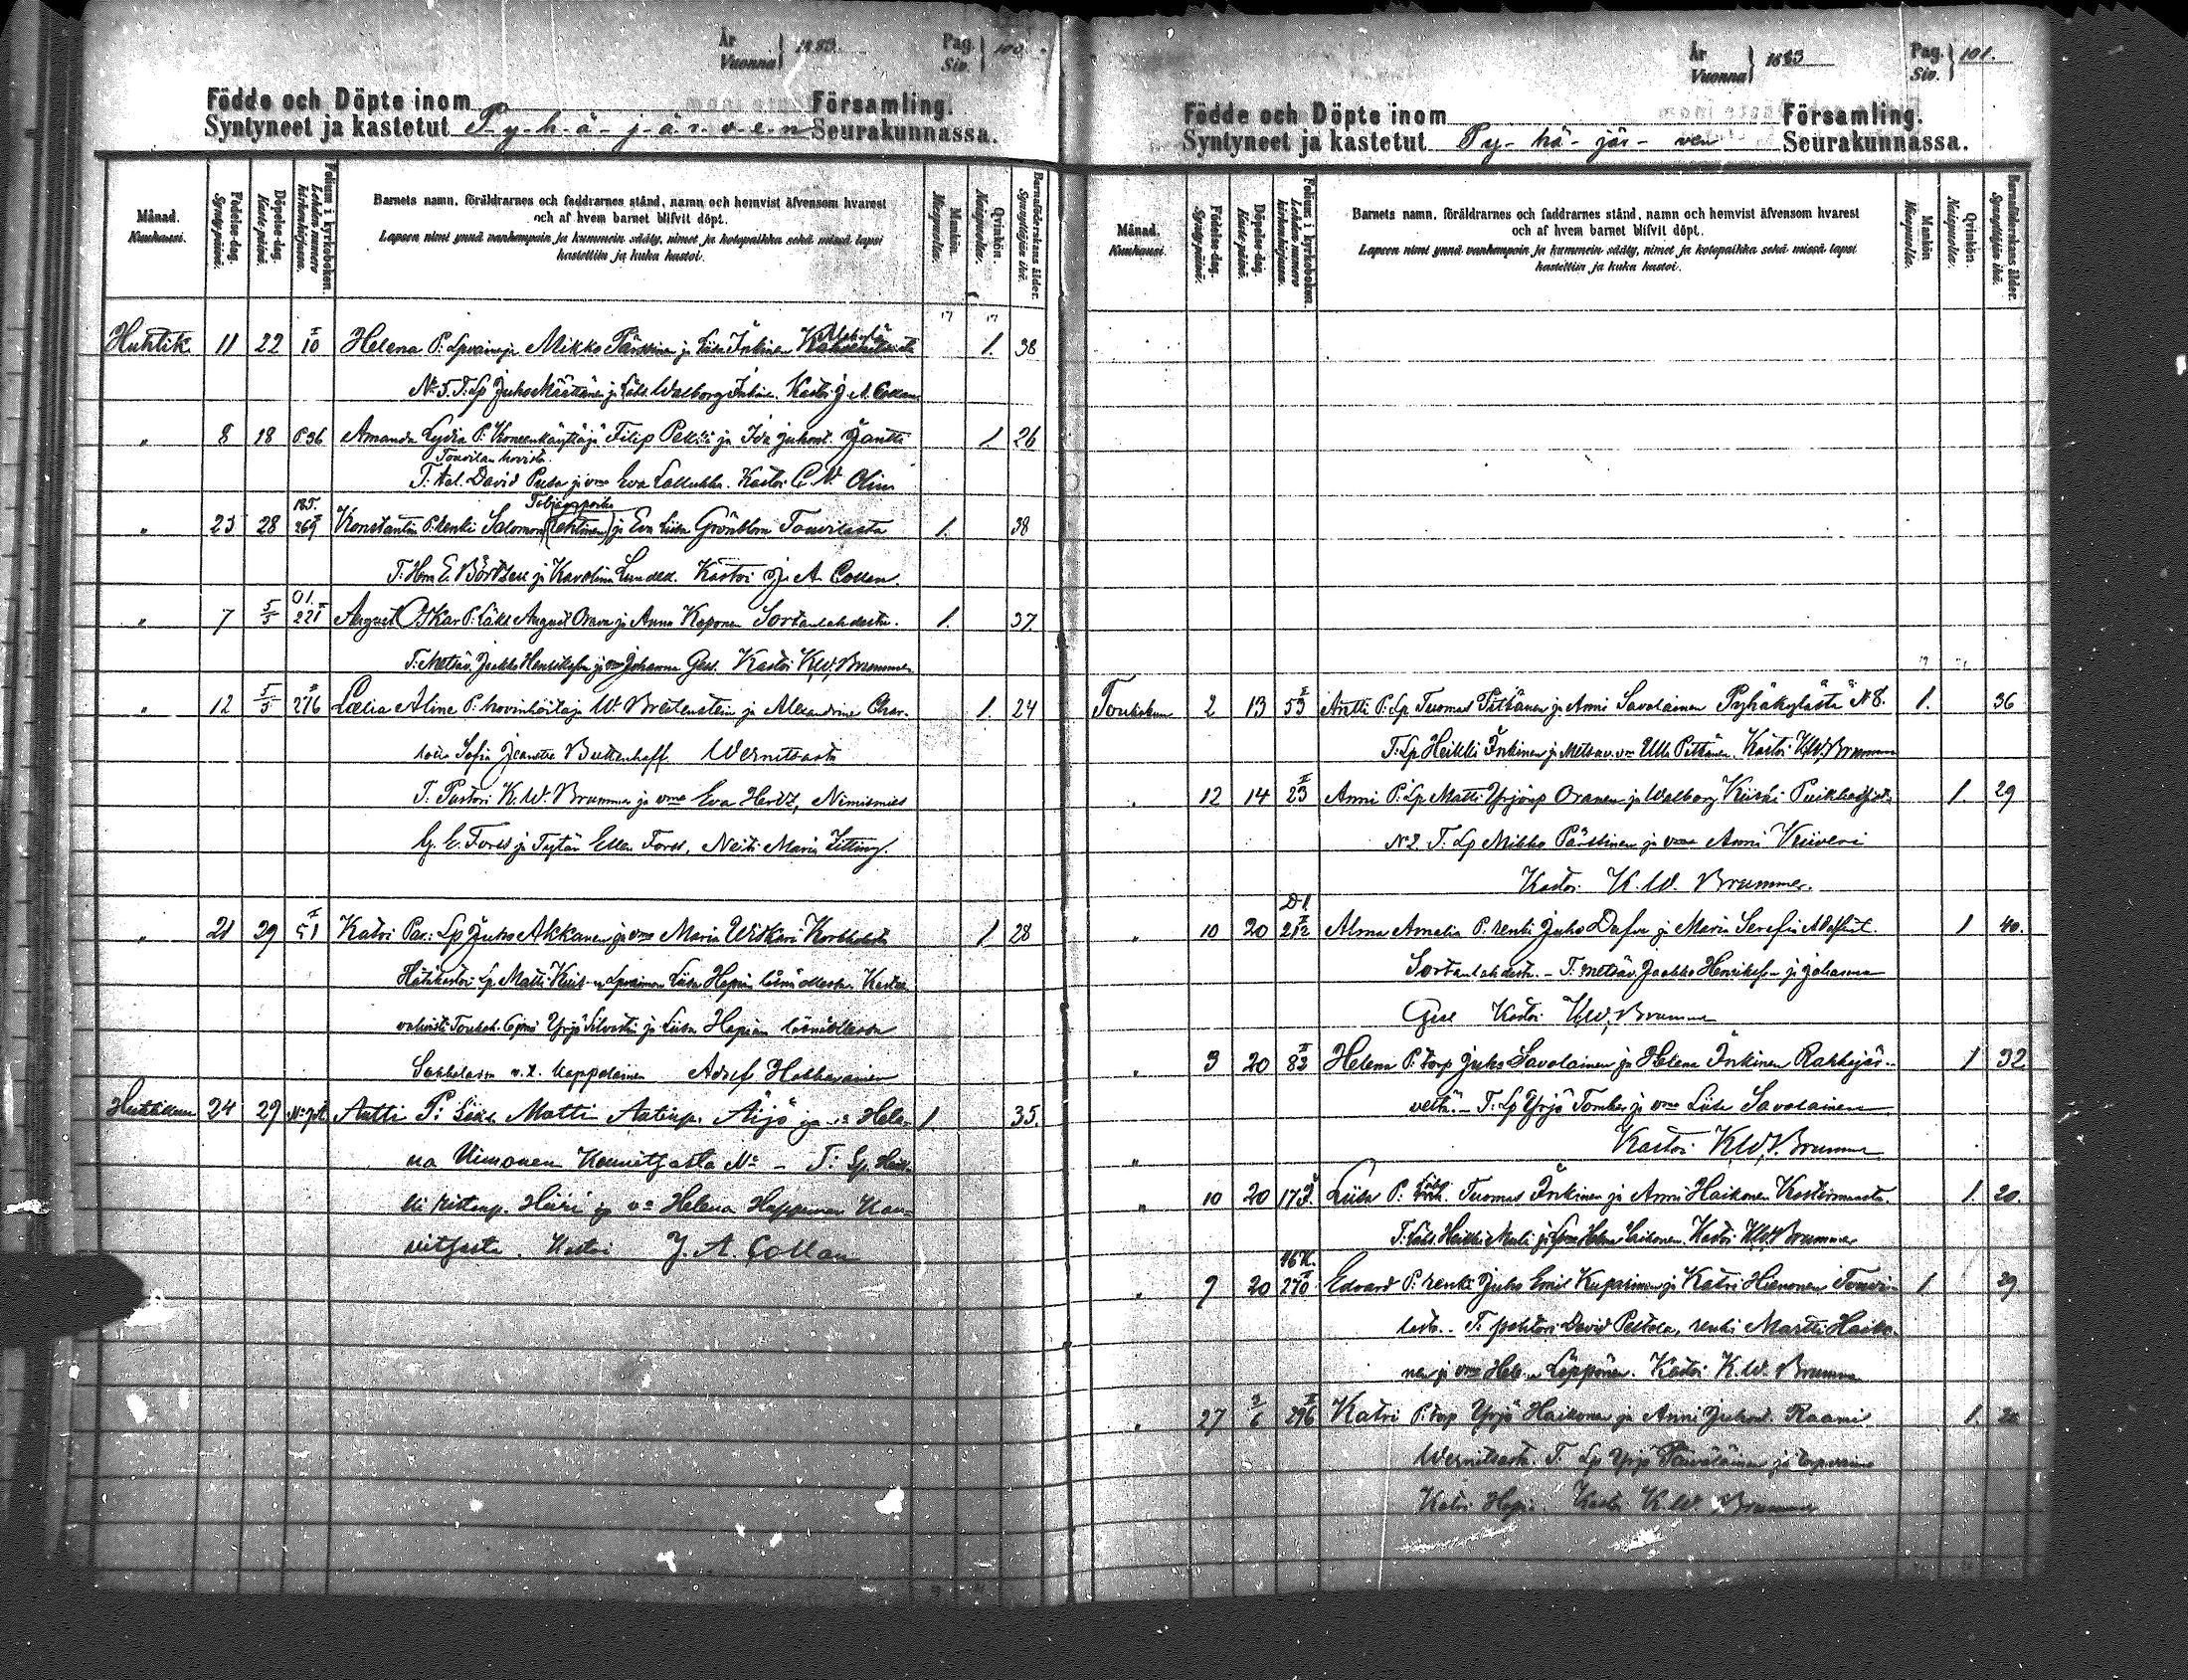 År
Vuonna } 1883. Pag.
Siv. } 100.
Födde och Döpte inom Församling.
Syntyneet ja kastetut P-y-h-ä-j-ä-r-v-e-n Seurakunnassa.
Månad.
Kuukausi.
Födelse-dag.
Syntypäivä.
Döpelse-dag.
Kaste-päivä.
Folium i kyrkoboken.
Lehden numero kirkonkirjassa.
Barnets namn, föräldrarnes och faddrarnes stånd, namn och hemvist äfvensom hvarest
och af hvem barnet blifvit döpt.
Lapsen nimi ynnä vanhempain ja kummein sääty, nimet ja kotopaikka sekä missä lapsi
kastettiin ja kuka kastoi.
Mankön.
Miespuolta.
Qvinkön.
Naispuolta.
Barnaföderskans ålder.
Synnyttäjän ikä.
Huhtik. 11 22 II 10 Helena P: Mikko Pärssinen ja Liisa Inkinen 1. 38
No 5. T: Lp Juho Määttänen ja Walborg Inkinen. Kastoi J. A. Collan
" 8 18 P. 96 Amanda Lydia P: Koneenkäyttäjä Filip Pekki ja Ida Juhont. Jantti 1. 26
Touvilan hovista.
T: David Pusa ja vmo Eva Lallukka. Kastoi C. N. Olin
" 23 28 269 Konstantin P: renki Salomon (Lehtinen) ja Eva Liisa Grönblom Touvilasta 1. 38
T: Hra E. ja Karolina Kastoi J. A. Collan.
" 7 5/5 221 August Oskar P: August Orava ja Anna Koponen Sortanlahdesta. 1. 37
T: Metsäv. Jaakko Henrikson ja vmo Johanna Kastoi K. W. Brummer
" 12 5/5 II 276 Lælia Aline P: hovinhoitaja W. Breitenstein ja Alexandrine Char- 1. 24
lotta Sofia Jeanette Wernitsasta
T. Pastori K. W. Brummer ja vmo Eva Hertz, Nimismies
G. E. Forss ja Tytär Ellen Forss, Neiti Maria
" 21 29 II 51 Katri Lp Juho Akkanen ja vmo Maria Wiskari 1 28
Hätäkastoi Lp Matti Liisa Hapian läsnä ollessa
Yrjö ja Liisa Hapian läsnäollessa
Sakkolassa v.t. kappalainen Adolf Hakkarainen
Huhtikuu 24 29 Antti P: Matti Antinp. Äijö ja vo Hele- 1 35.
na Kimonen Konnitsasta No – T: Lp. Heik-
ki Ristinp. Hiiri ja vo Helena Happonen Kon-
nitsasta. Kastoi J. A. Collan
År
Vuonna } 1883 Pag.
Siv. } 101.
Födde och Döpte inom Församling.
Syntyneet ja kastetut Py- hä- jär- ven Seurakunnassa.
Månad.
Kuukausi.
Födelse-dag.
Syntypäivä.
Döpelse-dag.
Kaste-päivä.
Folium i kyrkoboken.
Lehden numero kirkonkirjassa.
Barnets namn, föräldrarnes och faddrarnes stånd, namn och hemvist äfvensom hvarest
och af hvem barnet blifvit döpt.
Lapsen nimi ynnä vanhempain ja kummein sääty, nimet ja kotopaikka sekä missä lapsi
kastettiin ja kuka kastoi.
Mankön
Miespuolta.
Qvinkön.
Naispuolta.
Barnaföderskans ålder.
Synnyttäjän ikä.
Toukokuu 2 13 II 53 Antti P: Lp Tuomas Pitkänen ja Anni Savolainen Pyhäkylästä No 8. 1. 36
T: Lp Heikki Inkinen ja Metsäv. vmo Ulla Pitkänen. Kastoi K. W. Brummer
" 12 14 II 23 Anni P: Lp Matti Yrjönp Oranen ja Walborg Kiiski 1. 29
No 2 T. Lp Mikko Pärssinen ja vmo Anni Kiiveri
Kastoi K. W. Brummer.
" 10 20 II 212 Alma Amalia P: renki Juho Dufva ja Maria Serafia 1 40.
Sortanlahdesta. – T: metsäv. Jaakko Henrikson ja Johanna
Kastoi K. W. Brummer
" 3 20 II 82 Helena P: torp Juho Savolainen ja Helena Inkinen Rahkejär- 1 32
veltä. – T: Lp Yrjö Tomber ja vmo Liisa Savolainen
" Kastoi K. W. Brummer
" 10 20 173 Liisa P: Tuomas Inkinen ja Anni Haikonen Kostermaasta. 1. 20.
T: Heikki ja Helena Haikonen. Kastoi K. W. Brummer
" 9 20 46 K. II 270 Edvard P: renki Juho Emil Kuparinen ja Katri Hienonen Touvi- 1. 29.
lasta. – T: David Peltola, renki Martti Haiko-
nen ja vmo Helena Leppänen. Kastoi K. W. Brummer
" 27 3/6 II 296 Katri P: torp Yrjö Haikonen ja Anni Juhont. Raami 1. 20
Wernitsasta. T. Lp Yrjö Päiväläinen ja
Katri Kastoi K. W. Brummer